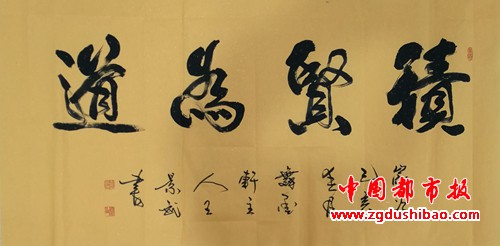 積賢為道
舞墨
軒主
人王
景武
書
中国都市报
www.zgdushibao.com